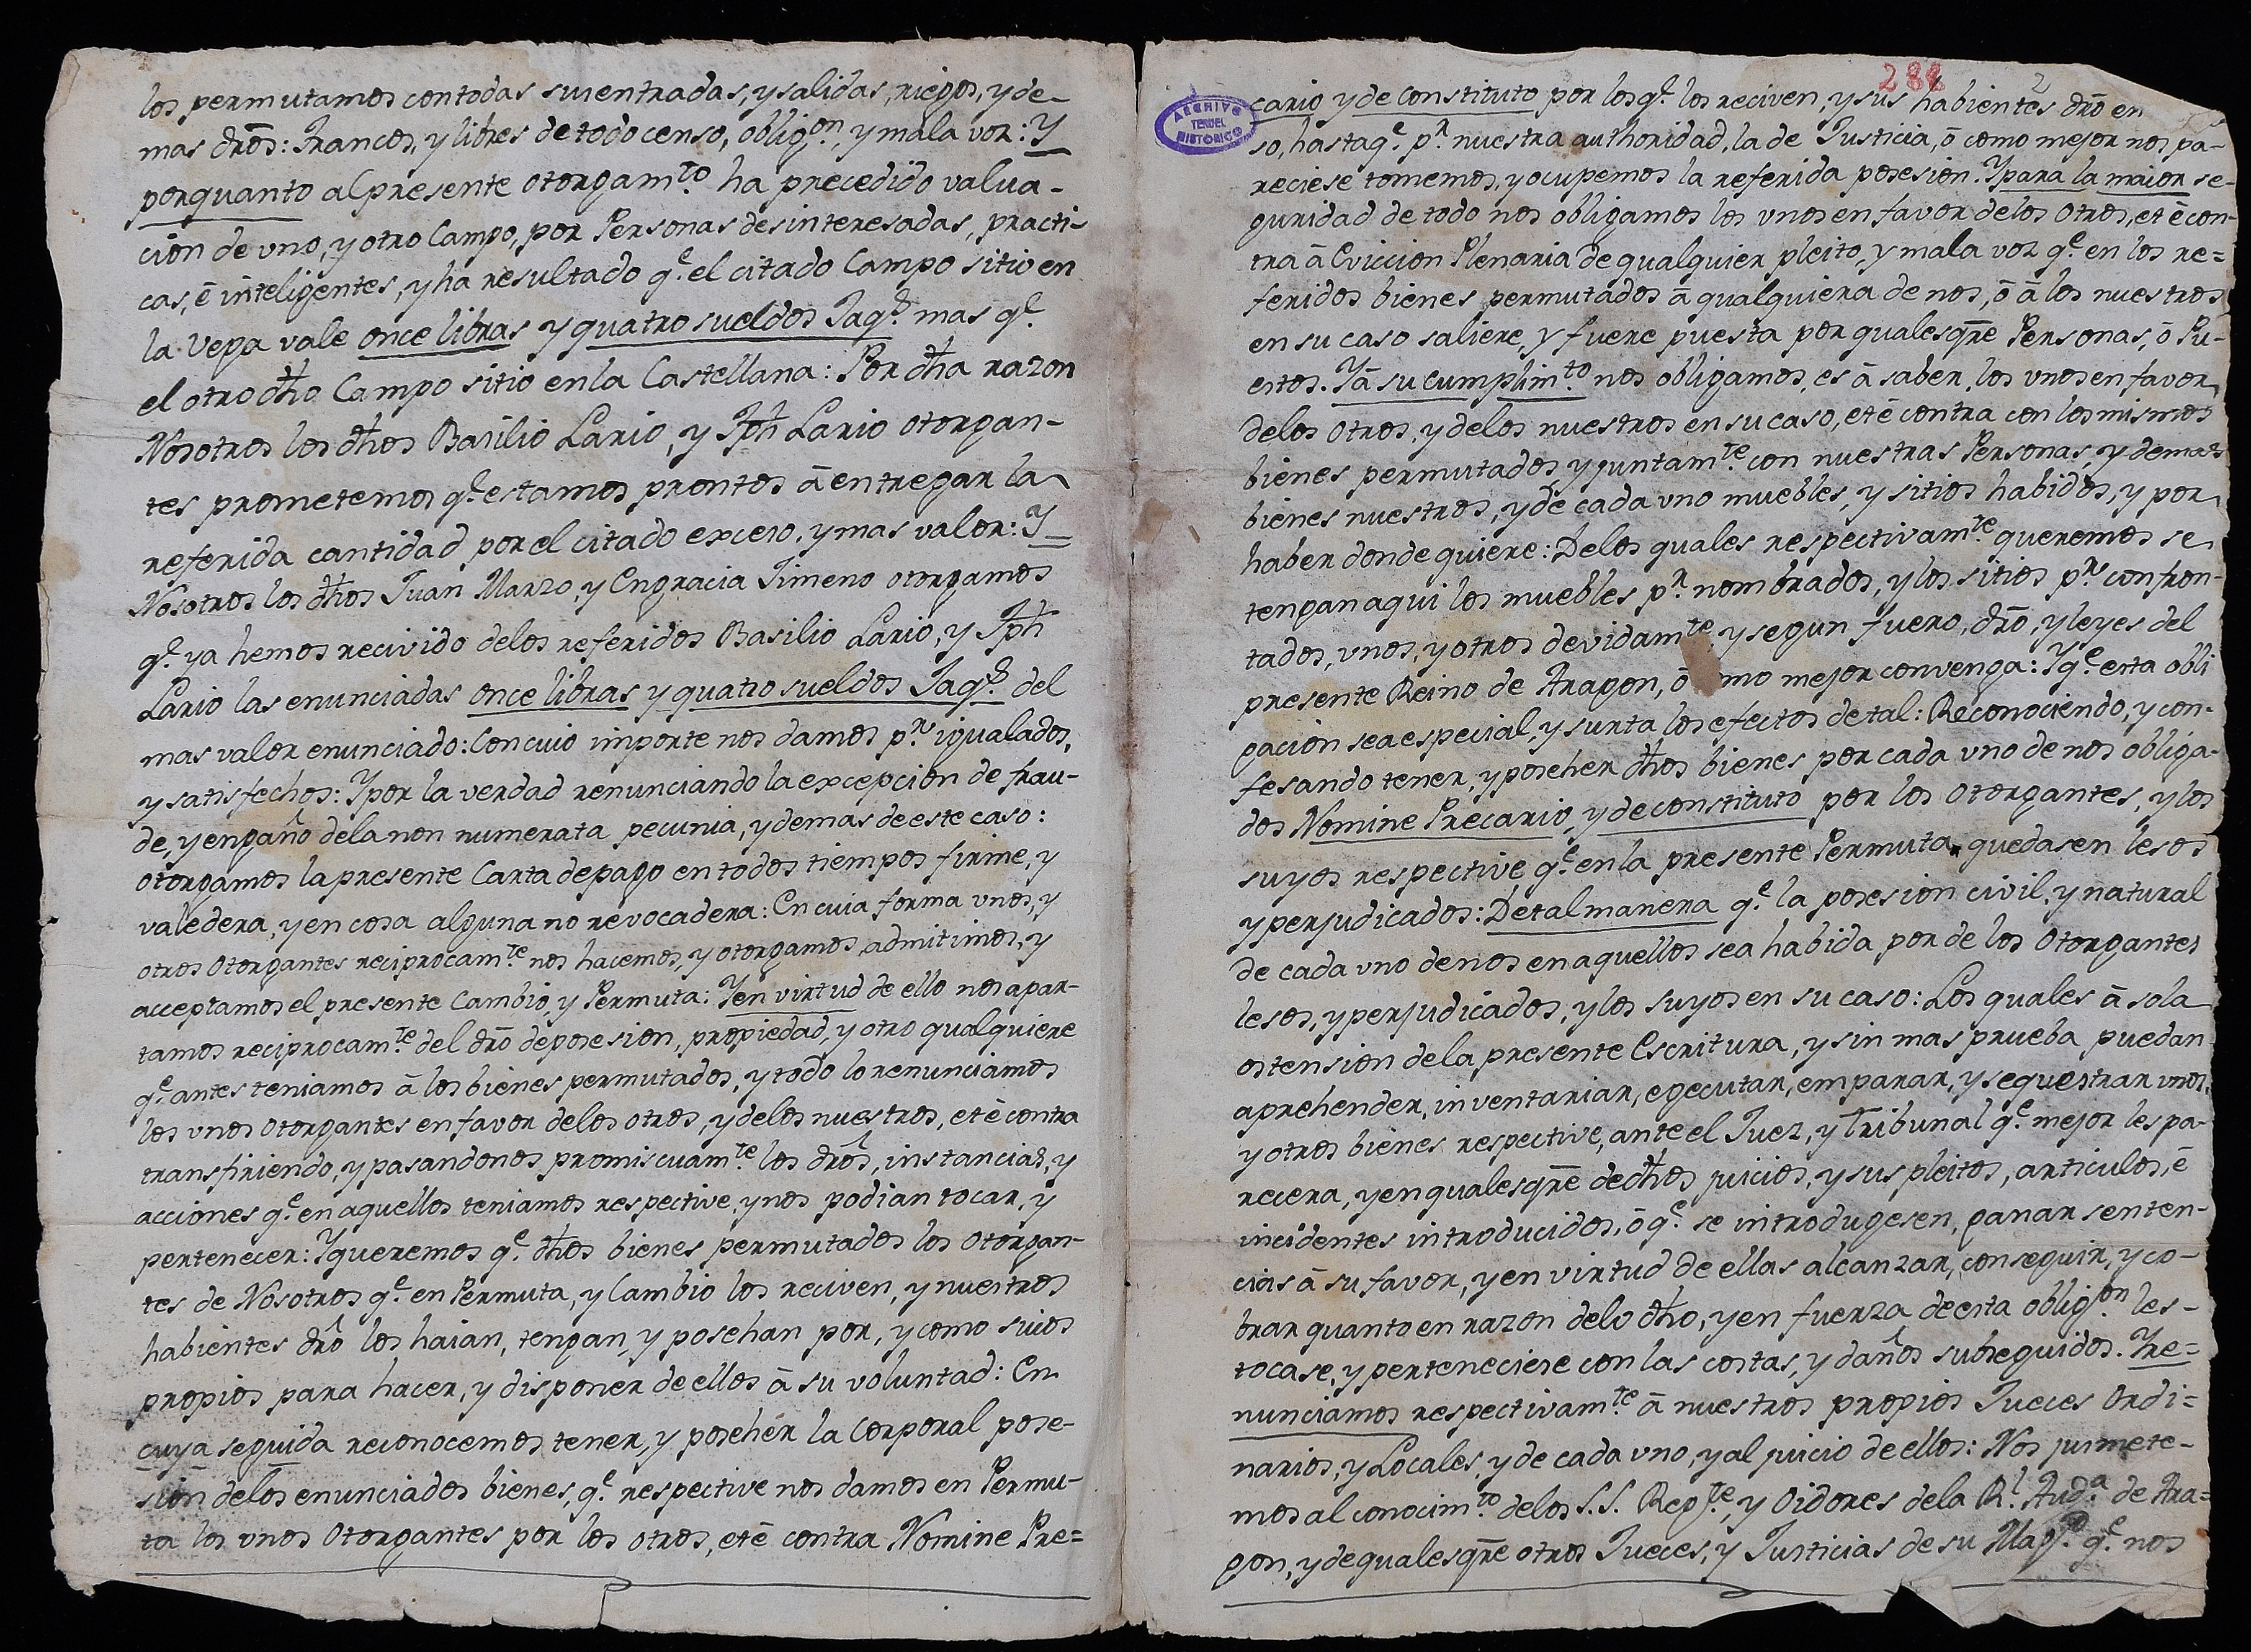 los permutamos con todas su entradas, y salidas, riegos, y de-
mas drõs: Francos, y libres de todo censo, oblig.on, y mala voz: Y
por quanto al presente otorgam.to ha precedido valua-
cion de vno, y otro Campo, por Personas desinteresadas, practi-
cas, ē inteligentes, y ha resultado q.e el citado Campo sitio en
la Vega vale once libras y quatro sueldos Jaq.s mas q.e
el otro dho Campo sitio en la Castellana: Por dha razon
Nosotros los dhos Basilio Lario, y Jph Lario otorgan-
tes prometemos q.e estamos prontos ā entregar la
referida cantidad por el citado exceso, y mas valor: Y
Nosotros los dhos Juan Marzo, y Engracia Jimeno otorgamos
q.e ya hemos recivido delos referidos Basilio Lario, y Jph
Lario las enunciadas once libras y quatro sueldos Jaq.s del
mas valor enunciado: Con cuio importe nos damos p.r igualados,
y satisfechos: Y por la verdad renunciando la excepcion de frau-
de, y engaño dela non numerata pecunia, y demas de este caso:
otorgamos la presente Carta de pago en todos tiempos firme, y
valedera, y en cosa alguna no revocadera: En cuia forma vnos, y
otros Otorgantes reciprocam.te nos hacemos, y otorgamos, admitimos, y
acceptamos el presente Cambio, y Permuta: Y en virtud de ello nos apar-
tamos reciprocam.te del drõ de posesion, propiedad, y otro qualquiere
q.e antes teniamos ā los bienes permutados, y todo lo renunciamos
los vnos Otorgantes en favor delos otros, y delos nuestros, et ē contra
transfiriendo, y pasandonos promiscuam.te los drõs, instancias, y
acciones q.e en aquellos teniamos respective, y nos podian tocar, y
pertenecer: Y queremos q.e dhos bienes permutados los Otorgan-
tes de Nosotros q.e en Permuta, y Cambio los reciven, y nuestros
habientes drõ los haian, tengan, y posehan por, y como suios
propios para hacer, y disponer de ellos ā su voluntad: En
cuya seguida reconocemos tener, y poseher la Corporal pose-
sion delos enunciados bienes, q.e respective nos damos en Permu-
ta los vnos Otorgantes por los otros, et ē contra Nomine Pre=
288
2
ARCHIVO
TERUEL
HISTORICO
cario y de Constituto por los q.e los reciven, y sus habientes drõ en
so, hasta q.e p.r nuestra authoridad, la de Justicia, ō como mejor nos pa-
reciese tomemos, y ocupemos la referida posesion. Y para la maior se-
guridad de todo nos obligamos los vnos en favor delos otros, et ē con-
tra ā Eviccion Plenaria de qualquier pleito, y mala voz q.e en los re=
feridos bienes permutados ā qualquiera de nos, ō ā los nuestros
en su caso saliere, y fuere puesta por qualesqre Personas, ō Pu-
estos. Y ā su cumplim.to nos obligamos, es ā saber, los vnos en favor
delos otros, y delos nuestros en su caso, et ē contra con los mismos
bienes permutados, y juntam.te con nuestras Personas, y demas
bienes nuestros, y de cada vno muebles, y sitios habidos, y por
haber donde quiere: Delos quales respectivam.te queremos se
tengan aqui los muebles p.r nombrados, y los sitios p.r confron-
tados, vnos, y otros devidam.te, y segun fuero, drõ, y leyes del
presente Reino de Aragon, ō mo mejor convenga: Y q.e esta obli
gacion sea especial, y surta los efectos de tal: Reconociendo, y con-
fesando tener, y poseher dhos bienes por cada vno de nos obliga-
dos Nomine Precario, y de constituto por los Otorgantes, y los
suyos respective q.e en la presente Permuta quedasen lesos
y perjudicados: De tal manera q.e la posesion civil, y natural
de cada vno de nos en aquellos sea habida por de los Otorgantes
lesos, y perjudicados, y los suyos en su caso: Los quales ā sola
ostension dela presente Escritura, y sin mas prueba puedan
aprehender, inventariar, egecutar, emparar, y sequestrar vnos,
y otros bienes respective, ante el Juez, y Tribunal q.e mejor les pa-
recera, y en qualesqre de dhos juicios, y sus pleitos, articulos, ē
incidentes introducidos, ō q.e se introdugesen, ganar senten-
cias ā su favor, y en virtud de ellas alcanzar, conseguir, y co-
brar quanto en razon delo dho, y en fuerza de esta oblig.on les-
tocase, y perteneciese con las costas, y daños subseguidos. Y re=
nunciamos respectivam.te ā nuestros propios Jueces Ordi=
narios, y Locales, y de cada vno, y al juicio de ellos: Nos jusmete-
mos al conocim.to delos S.S. Reg.te, y Oidores dela R.l Aud.a de Ara=
gon, y de qualesqre otros Jueces, y Justicias de su Mag.d q.e nos